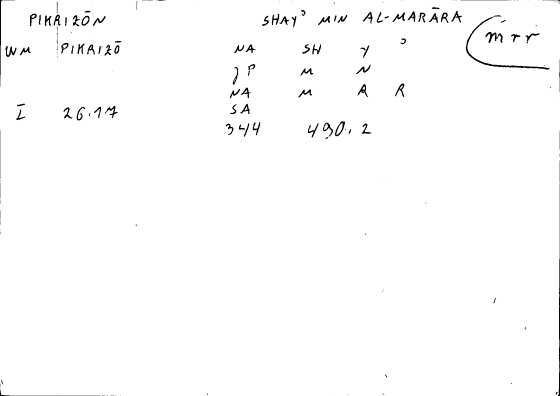 PIKRIZŌN SHAYʾ MIN AL-MARĀRA mrr
WM PIKRIZŌ NA SH Y ʾ
JP M N
NA M R R
I 26.17 SA
344 490.2